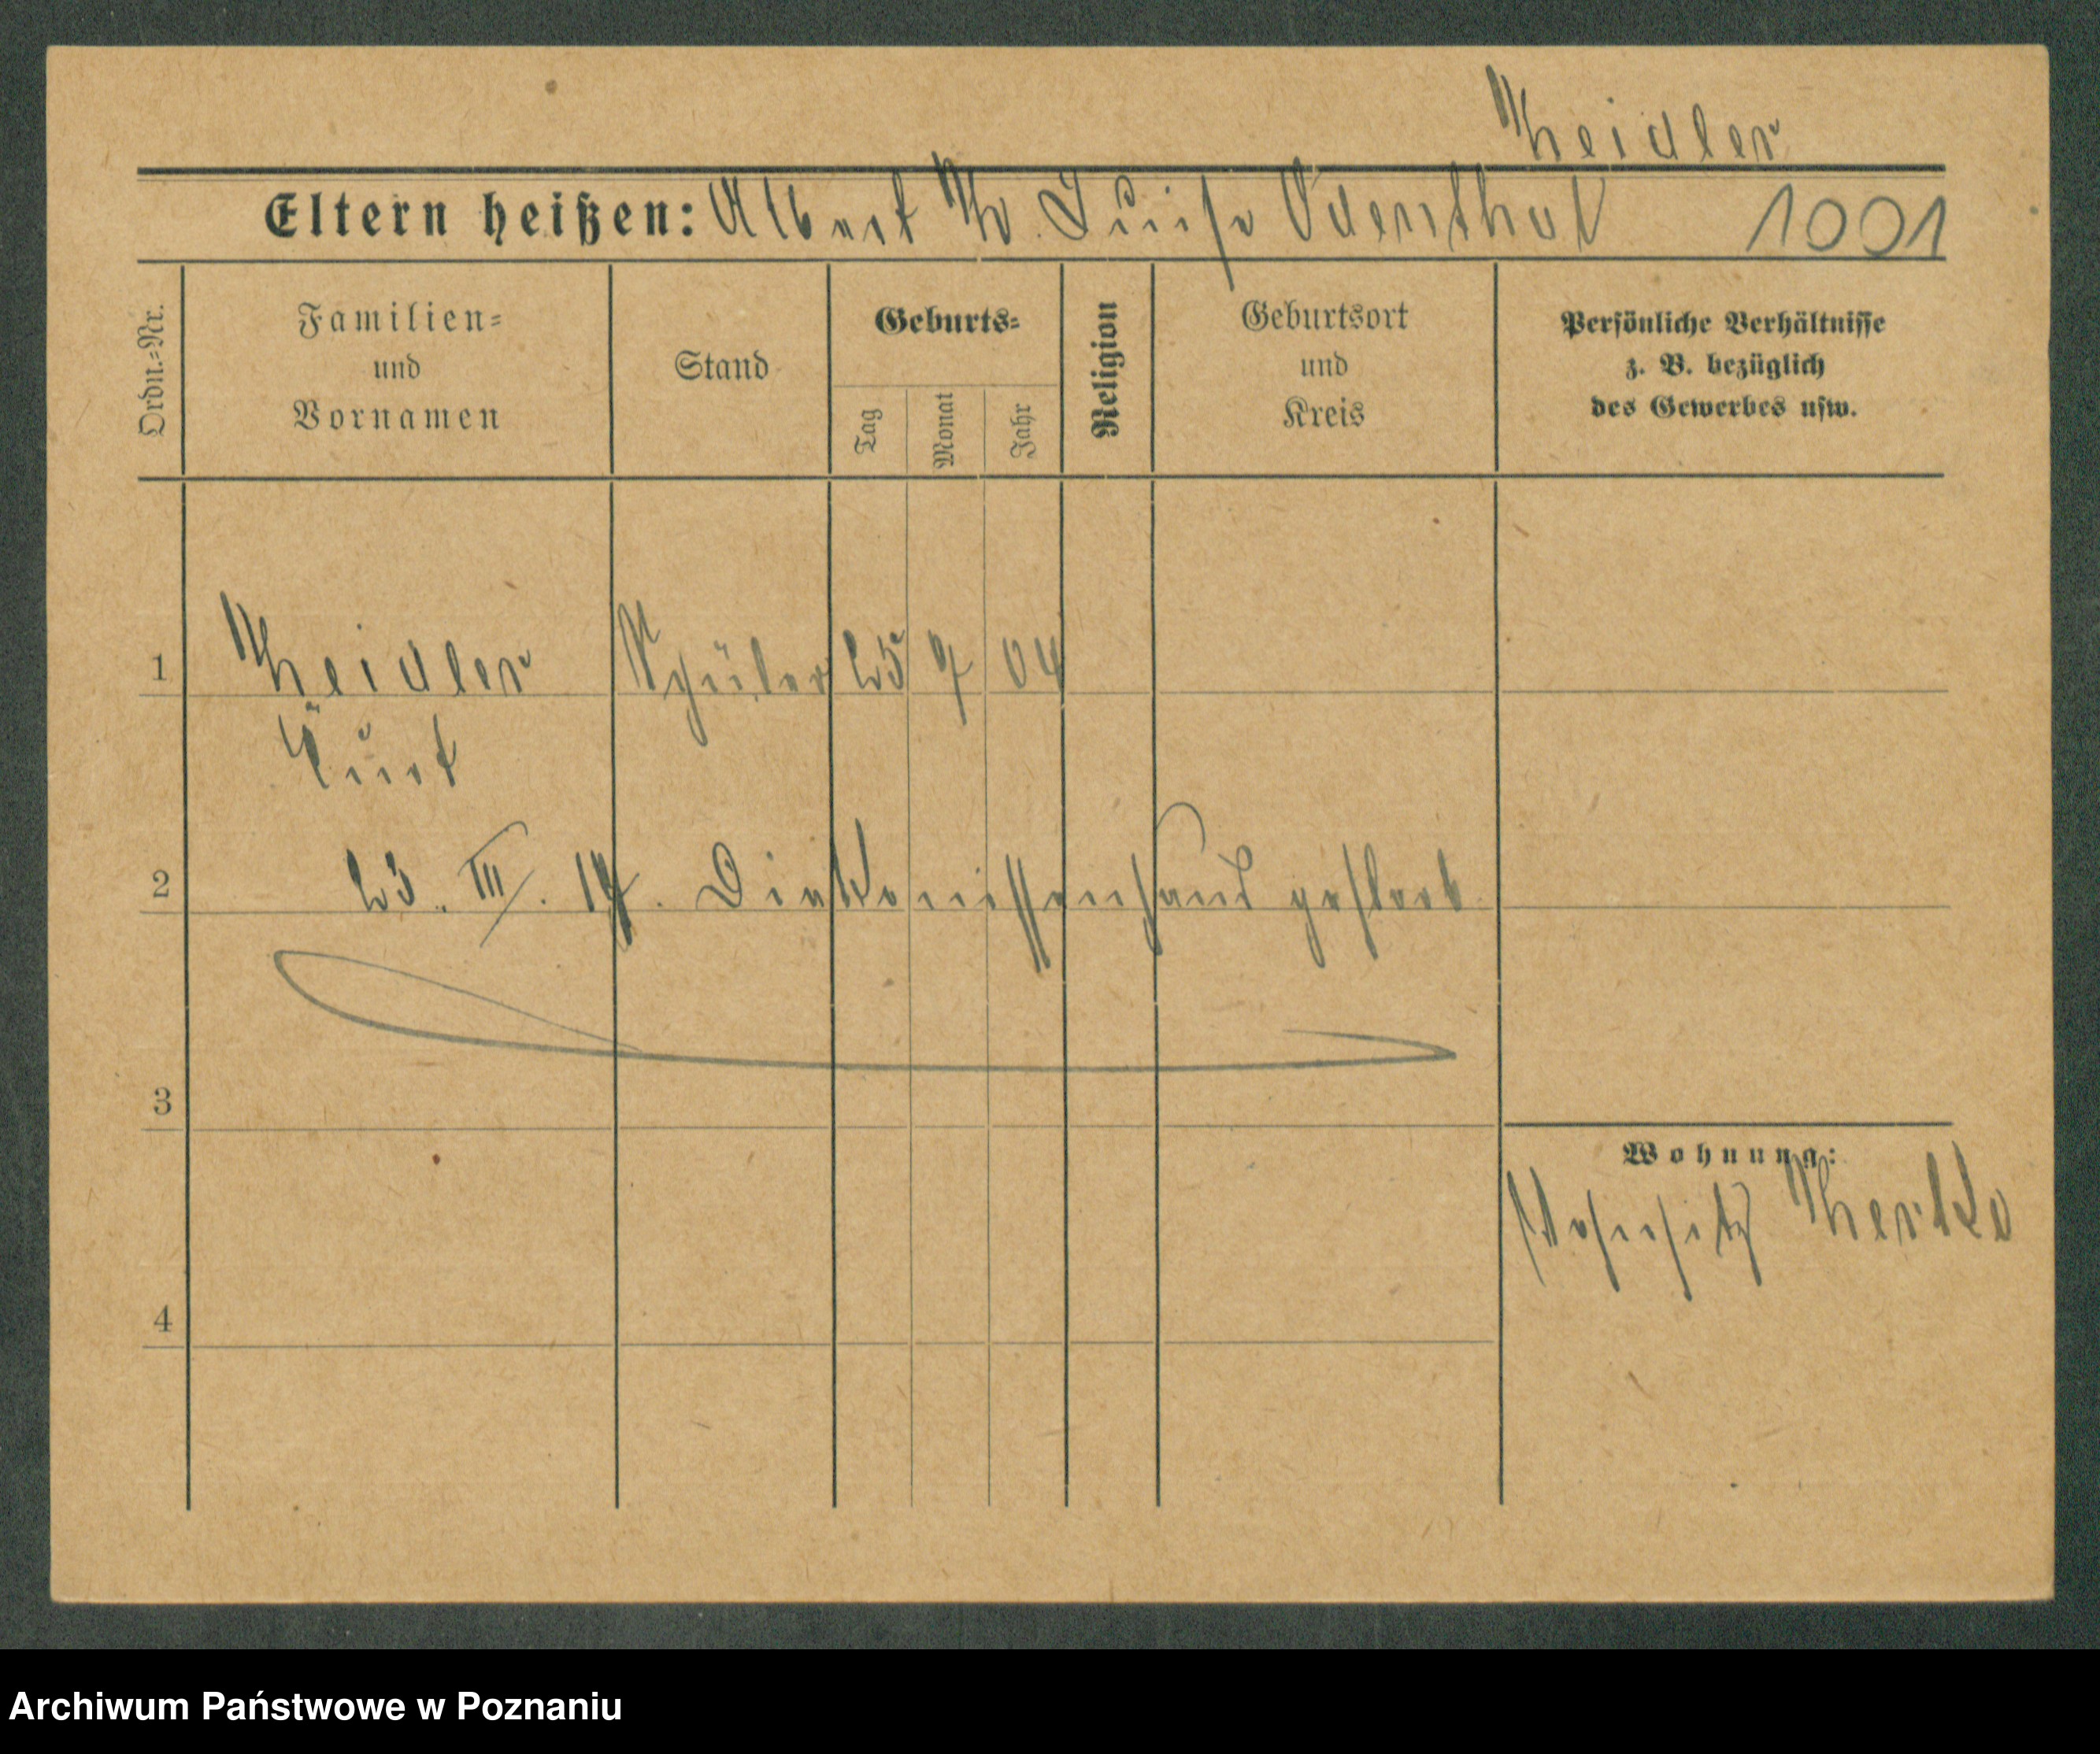 Neidler
Eltern heißen: Albert N. Luise Odenthal 1001
Ordn.=Nr.
Familien=
und
Vornamen
Stand
Geburts=
Tag
Monat
Jahr
Religion
Geburtsort
und
Kreis
Persönliche Verhältnisse
z. B. bezüglich
des Gewerbes usw.
1 Neidler Schüler 25 9 04
Kurt
2 23. III. 19. Diakonissenhaus gestorb.
3
Wohnung:
Wohnsitz
4
Archiwum Państwowe w Poznaniu